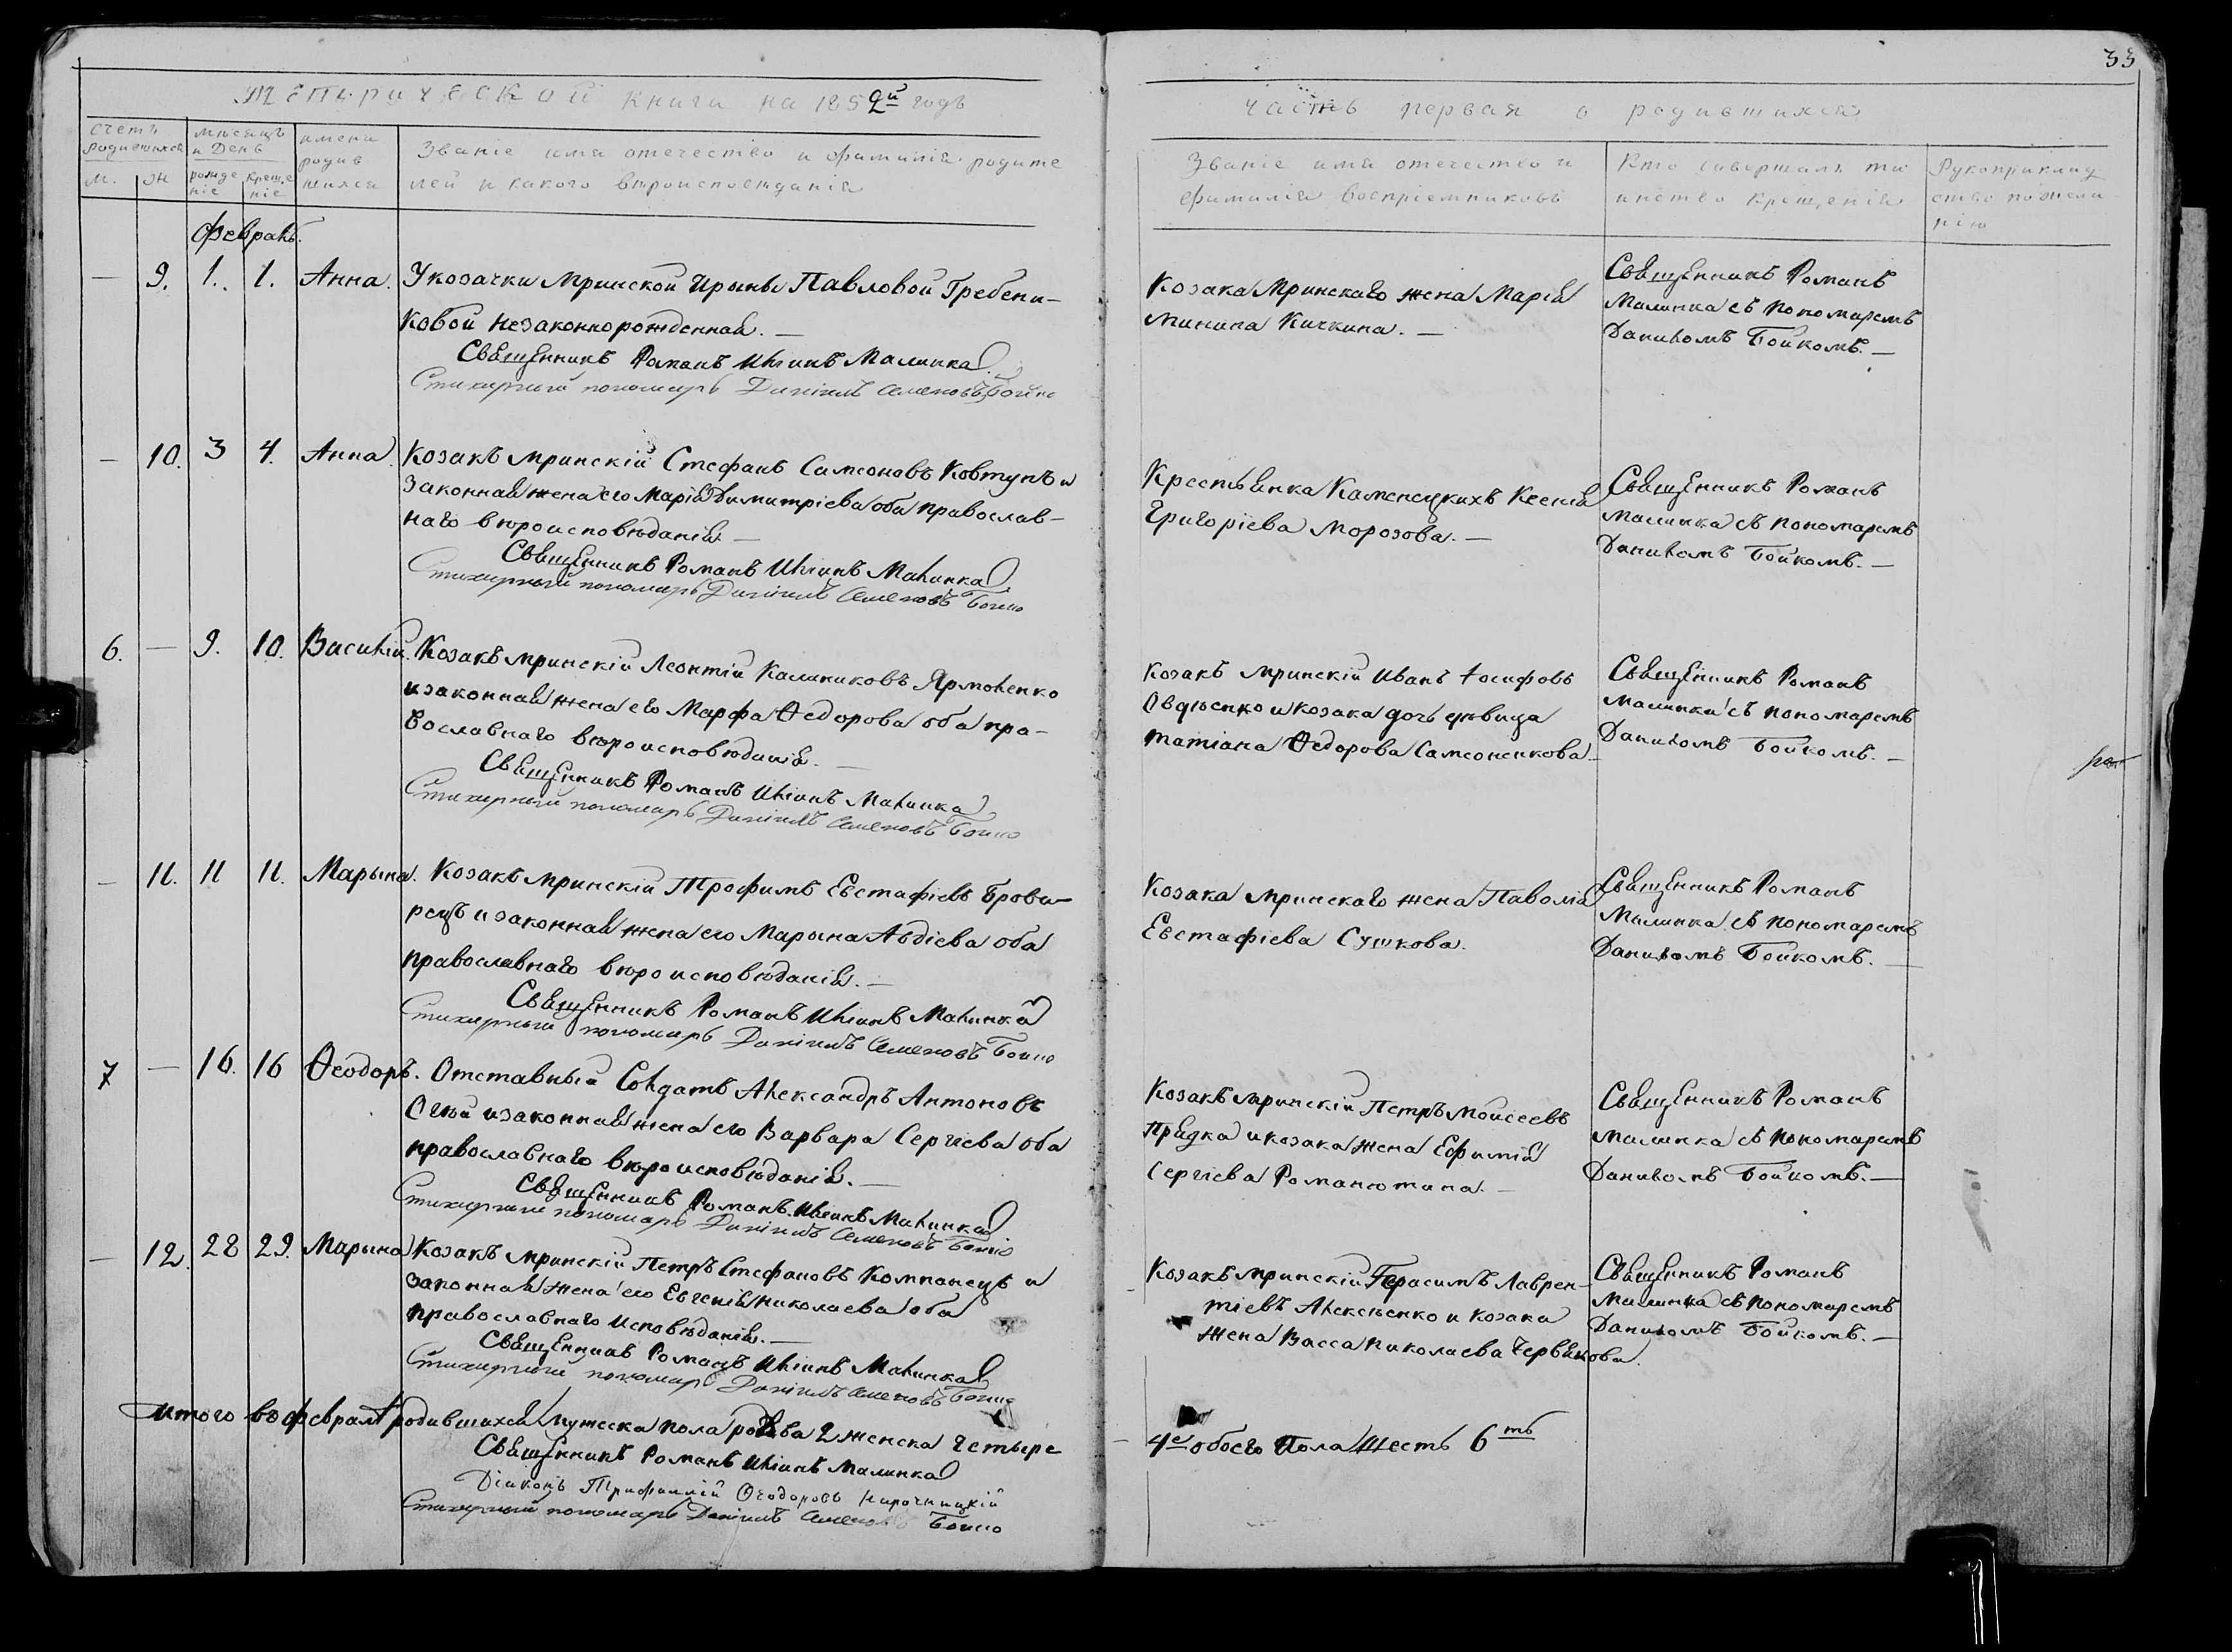 33
Метрической книги на 1852й годъ
Часть первая о родившихся
Счетъ родившихся
м. ж
мѣсяцъ и День
рожденіе
крещеніе
имена родившихся
Званіе имя отечество и фамилія родителей и какого вѣроисповѣданія
Званіе имя отечество и фамилія воспріемниковъ
Кто совершалъ таинство крещенія
Рукоприкладство по желанію
Февраль.
— 9. 1. 1. Анна. У козачки мринской Ирыны Павловой Гребени-
ковой незаконнорожденная. —
Священникъ Романъ Иліинъ Малинка
Стихарный пономарь Даніилъ Семеновъ Бойко
Козака Мринскаго жена Марія
Минина Кичкина. —
Священникъ Романъ
Малинка съ пономаремъ
Даниломъ Бойкомъ. —
— 10. 3 4. Анна. Козакъ мринскій Стефанъ Самсоновъ Ковтунъ и
законная жена его Марія Димитріева оба православ-
наго вѣроисповѣданія. —
Священникъ Романъ Иліинъ Малинка
Стихарный пономарь Даніилъ Семеновъ Бойко
Крестьянка Каменецкихъ Ксенія
Григоріева Морозова. —
Священникъ Романъ
Малинка съ пономаремъ
Даниломъ Бойкомъ. —
6. — 9. 10. Василій. Козакъ мринскій Леонтій Калиниковъ Ярмоленко
и законная жена его Марфа Ѳедорова оба пра-
вославнаго вѣроисповѣданія. —
Священникъ Романъ Иліинъ Малинка
Стихарный пономарь Даніилъ Семеновъ Бойко
Козакъ мринскій Иванъ Іосифовъ
Овдѣенко и козака дочь дѣвица
татіана Ѳедорова Самсоненкова —
Священникъ Романъ
Малинка съ пономаремъ
Даниломъ Бойкомъ. —
— 11. 11 11. Марына. Козакъ мринскій Трофимъ Евстафіевъ Брова-
рецъ и законная жена его Марына Авдіева оба
православнаго вѣроисповѣданія. —
Священникъ Романъ Иліинъ Малинка
Стихарный пономарь Даніилъ Семеновъ Бойко
Козака мринскаго жена Паволія
Евстафіева Сушкова.
Священникъ Романъ
Малинка съ пономаремъ
Даниломъ Бойкомъ. —
7 — 16. 16 Ѳеодоръ. Отставный Солдатъ Александръ Антоновъ
и законная жена его Варвара Сергіева оба
православнаго вѣроисповѣданія. —
Священникъ Романъ Иліинъ Малинка
Стихарный пономарь Даніилъ Семеновъ Бойко
Козакъ мринскій Петръ Моисеевъ
Прядка и козака жена Ефимія
Сергіева Романютина. —
Священникъ Романъ
Малинка съ пономаремъ
Даниломъ Бойкомъ. —
— 12. 28 29. Марына Козакъ мринскій Петръ Стефановъ Компанецъ и
законная жена его Евгенія Николаева оба
православнаго исповѣданія. —
Священникъ Романъ Иліинъ Малинка
Стихарный пономарь Даніилъ Семеновъ Бойко
Козакъ мринскій Герасимъ Лаврен-
тіевъ Алексѣенко и козака
жена Васса Николаева Червякова.
Священникъ Романъ
Малинка съ пономаремъ
Даниломъ Бойкомъ. —
Итого въ февралѣ родившихся мужеска пола два 2 женска четыре
4е обоего пола Шесть 6ть
Священникъ Романъ Иліинъ Малинка
Діаконъ Трифиллій Ѳеодоровъ
Стихарный пономарь Даніилъ Семеновъ Бойко